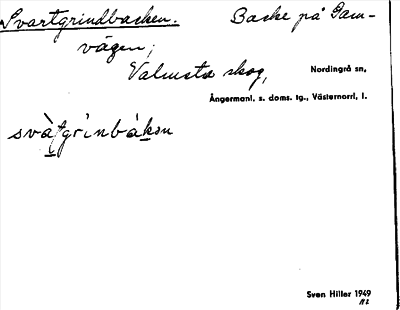 Svartgrindbacken. Backe på Gam-
vägen;
Valmsta skog, Nordingrå sn,
Ångermanl. s. doms. tg., Västernorrl. l.
svàʈgrinbákən
Sven Hiller 1949